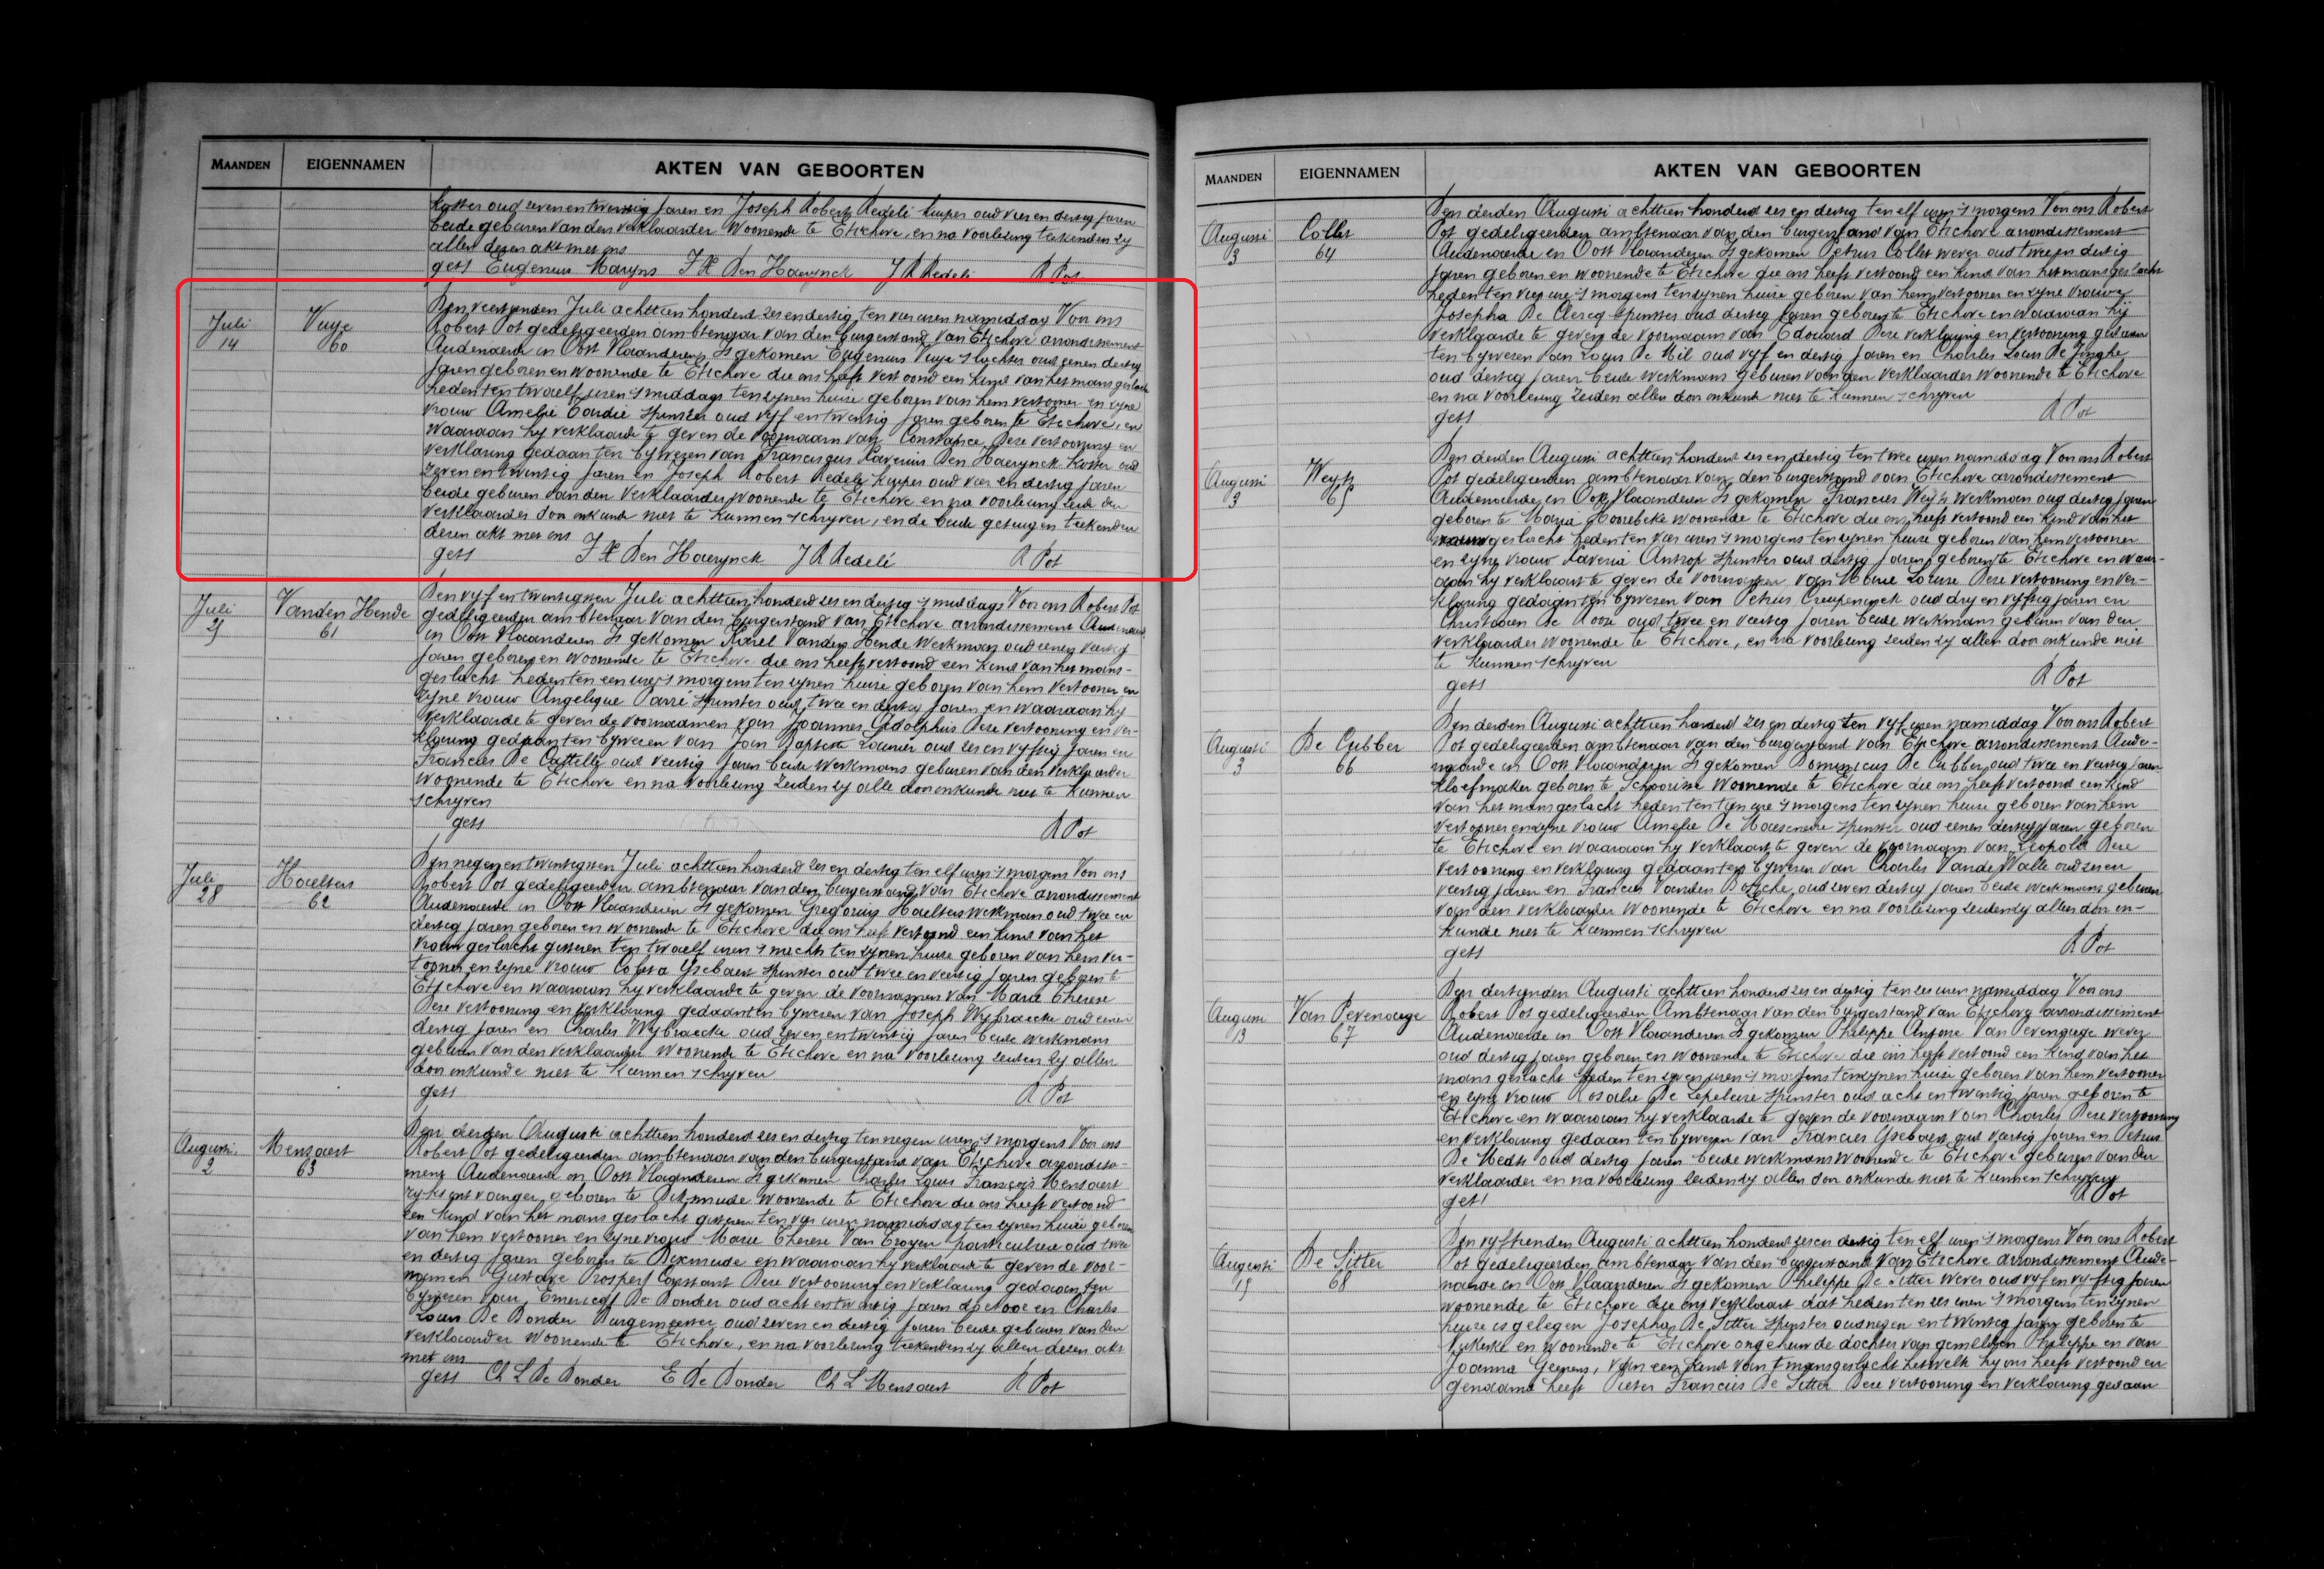 MAANDEN EIGENNAMEN AKTEN VAN GEBOORTEN
Koster oud zevenentwintig Jaren en Joseph Robert Redelé kuiper oud vier en dertig jaren
beide geburen van den verklaarder woonende te Etichove, en na voorlezing teekenden zy
allen dezen akt met ons
get. Eugenius Maryns F X Den Haerynck J R Redelé R Pot
Juli 14 Vuye 60
Den veertienden Juli achttien honderd zes en dertig ten vier uren namiddag Voor ons
Robert Pot gedeligeerden ambtenaar van den burgerstand van Etichove arrondissement
Audenaerde in Oost Vlaanderen Is gekomen Eugenius Vuye slachter oud eenen dertig
Jaren geboren en woonende te Etichove die ons heeft vertoond een kind van het mans geslacht
heden ten twaelf uren 's middags ten zynen huize geboren van hem vertooner en zyne
vrouw Amelie Coudié spinster oud vyf en twintig Jaren geboren te Etichove, en
waaraan hy verklaarde te geven de voornaam van Constance Deze vertooning en
verklaring gedaan ten bywezen van Franciscus Xaverius Den Haerynck Koster oud
zeven en twintig Jaren en Joseph Robert Redelé kuiper oud vier en dertig Jaren
beide geburen van den verklaarder, woonende te Etichove en na voorlezing zeide den
verklaarder door onkunde niet te kunnen schryven, en de beide getuigen teekenden
dezen akt met ons
get. F X Den Haerynck J R Redelé R Pot
Juli 25 Vanden Hende 61
Den vyf en twintigsten Juli achttien honderd zes en dertig 's middags Voor ons Robert Pot
gedeligeerden ambtenaar van den burgerstand van Etichove arrondissement Audenaerde
in Oost Vlaanderen Is gekomen Karel Vanden Hende Werkman oud eenen veertig
Jaren geboren en woonende te Etichove die ons heeft vertoond een kind van het mans-
geslacht heden ten een ure 's morgens ten zynen huize geboren van hem vertooner en
zyne vrouw Angelique Parré spinster oud twee en dertig Jaren en waaraan hy
verklaarde te geven de voornaamen van Joannes Adolphus Deze vertooning en ver-
klaring gedaan ten bywezen van Jan Baptiste oud zes en vyftig Jaren en
Francies De Castelle oud veertig Jaren beide werkmans geburen van den verklaarder
Woonende te Etichove en na voorlezing zeiden zy alle door onkunde niet te kunnen
schryven
get. R Pot
Juli 28 Haelters 62
Den negen en twintigsten Juli achttien honderd zes en dertig ten elf uren 's morgens Voor ons
Robert Pot gedeligeerden ambtenaar van den burgerstand van Etichove arrondissement
Audenaerde in Oost Vlaanderen Is gekomen Gregorius Haelters werkman oud twee en
dertig jaren geboren en woonende te Etichove die ons heeft vertoond een kind van het
vrouw geslacht gisteren ten twaelf uren 's nachts ten zynen huize geboren van hem ver-
tooner en zyne vrouw Coleta Ysebaert spinster oud twee en veertig Jaren geboren te
Etichove en waaraan hy verklaarde te geven de voornaamen van Marie Therese
Deze vertooning en verklaring gedaan ten bywezen van Joseph Wybraecke oud eenen
dertig Jaren en Charles Wybraecke oud zeven en twintig Jaren beide werkmans
geburen van den verklaarder woonende te Etichove en na voorlezing zeiden zy allen
door onkunde niet te kunnen schryven
get. R Pot
Augusti 2 Mensaert 63
Den derden Augusti achttien honderd zes en dertig ten negen uren 's morgens Voor ons
Robert Pot gedeligeerden ambtenaar van den burgerstand van Etichove arrondisse-
ment Audenaerde in Oost Vlaanderen Is gekomen Charles Louis François Mensaert
ryksontvanger geboren te Dixmude woonende te Etichove die ons heeft vertoond
een kind van het mans geslacht gisteren ten vier uren namiddag ten zynen huize geboren
van hem vertooner en zyne vrouw Marie Therese Van Eroyen particuliere oud twee
en dertig Jaren geboren te Dixmude en waaraan hy verklaarde te geven de voor-
namen Gustave Prosper Constant Deze vertooning en verklaring gedaan ten
bywezen van Emericus De Donder oud acht en twintig Jaren en Charles
Louis De Donder Burgemeester oud zeven en dertig Jaren beide geburen van den
verklaarder woonende te Etichove, en na voorlezing teekenden zy allen dezen akt
met ons
get. Ch L De Donder E De Donder Ch L Mensaert R Pot
MAANDEN EIGENNAMEN AKTEN VAN GEBOORTEN
Augusti 3 Collet 64
Den derden Augusti achttien honderd zes en dertig ten elf uren 's morgens Voor ons Robert
Pot gedeligeerden ambtenaar van den burgerstand van Etichove arrondissement
Audenaerde in Oost Vlaanderen Is gekomen Petrus Collet wever oud twee en dertig
jaren geboren en woonende te Etichove die ons heeft vertoond een kind van het mans geslacht
heden ten vier ure 's morgens ten zynen huize geboren van hem vertooner en zyne vrouw
Josepha De Clercq spinster oud dertig Jaren geboren te Etichove en waaraan hy
verklaarde te geven de voornaam van Edouard Deze verklaring en vertooning gedaan
ten bywezen van Louis De Mil oud vyf en dertig Jaren en Charles Louis De Jonghe
oud dertig jaren beide werkmans geburen van den verklaarder woonende te Etichove
en na voorlezing zeiden allen door onkunde niet te kunnen schryven
get. R Pot
Augusti 3 Weyts 65
Den derden Augusti achttien honderd zes en dertig ten twee uren namiddag Voor ons Robert
Pot gedeligeerden ambtenaar van den burgerstand van Etichove arrondissement
Audenaerde in Oost Vlaanderen Is gekomen Francies Weyts werkman oud dertig Jaren
geboren te Maria Hoorebeke woonende te Etichove die ons heeft vertoond een kind van het
vrouwgeslacht heden ten vier uren 's morgens ten zynen huize geboren van hem vertooner
en zyne vrouw Xaveria Antrop spinster oud dertig Jaren geboren te Etichove en waar-
aan hy verklaart te geven de voornamen van Marie Louise Deze vertooning en ver-
klaring gedaan ten bywezen van Petrus Creupeninck oud dry en vyftig jaren en
Christiaen De Rooze oud twee en veertig Jaren beide werkmans geburen van den
verklaarder woonende te Etichove, en na voorlezing zeiden zy allen door onkunde niet
te kunnen schryven
get. R Pot
Augusti 3 De Cubber 66
Den derden Augusti achttien honderd zes en dertig ten vyf uren namiddag Voor ons Robert
Pot gedeligeerden ambtenaar van den burgerstand van Etichove arrondissement Aude-
naarde in Oost Vlaanderen Is gekomen Dominicus De Cubber oud twee en veertig Jaren
kloefmaker geboren te Schoorisse woonende te Etichove die ons heeft vertoond een kind
van het mans geslacht heden ten tien ure 's morgens ten zynen huize geboren van hem
vertooner en zyne vrouw Amelie De Maeseneire spinster oud eenen dertig Jaren geboren
te Etichove en waaraan hy verklaart te geven de voornaam van Leopold Deze
vertooning en verklaring gedaan ten bywezen van Charles Vande Walle oud zes en
veertig jaren en Francies Vanden Bossche, oud zeven dertig jaren beide werkmans geburen
van den verklaarder woonende te Etichove en na voorlezing zeiden zy allen door on-
kunde niet te kunnen schryven
get. R Pot
Augusti 13 Van Pevenaege 67
Den dertienden Augusti achttien honderd zes en dertig ten zes uren namiddag Voor ons
Robert Pot gedeligeerden Ambtenaar van den burgerstand van Etichove arrondissement
Audenaerde in Oost Vlaanderen Is gekomen Philippe Antone Van Pevenaege wever
oud dertig jaren geboren en woonende te Etichove die ons heeft vertoond een kind van het
mans geslacht heden ten zeven uren 's morgens ten zynen huize geboren van hem vertooner
en zyne vrouw Rosalie De Lepeleire spinster oud acht en twintig Jaren geboren te
Etichove en waaraan hy verklaarde te geven de voornaam van Charles Deze vertooning
en verklaring gedaan ten bywezen van Francies Ysebaert oud veertig Jaren en Petrus
De Medts oud dertig Jaren beide werkmans woonende te Etichove geburen van den
verklaarder en na voorlezing zeiden zy allen door onkunde niet te kunnen schryven
get. R Pot
Augusti 15 De Sitter 68
Den vyftienden Augusti achttien honderd zes en dertig ten elf uren 's morgens Voor ons Robert
Pot gedeligeerden ambtenaar van den burgerstand van Etichove arrondissement Aude-
naerde in Oost Vlaanderen Is gekomen Philippe De Sitter wever oud vyf en vyftig Jaren
woonende te Etichove die ons verklaart dat heden ten zes uren 's morgens ten zynen
huize is gelegen Josepha De Sitter spinster oud negen en twintig jaren geboren te
Nukerke en woonende te Etichove ongehuwde dochter van gemelden Philippe en van
Joanna Geenens, van een kind van 't mansgeslacht hetwelk hy ons heeft vertoond en
genaamd heeft Pieter Francies De Sitter Deze vertooning en verklaring gedaan